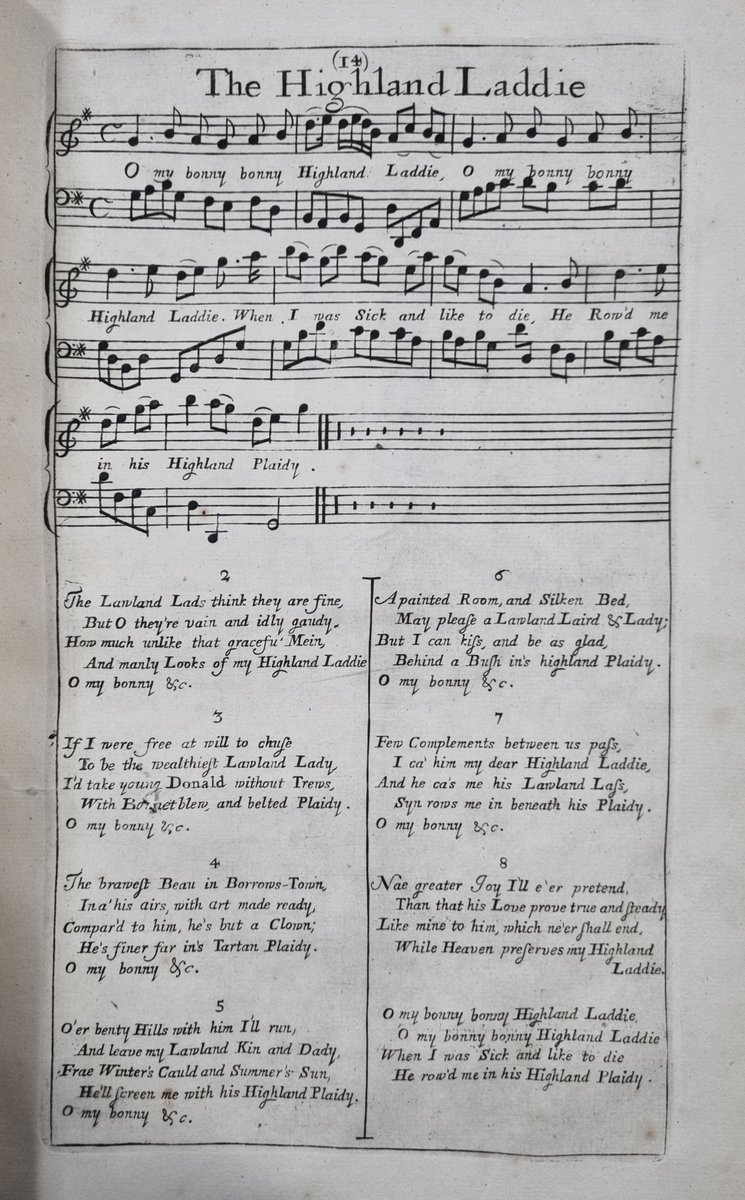 (14)
The Highland Laddie
O my bonny bonny Highland Laddie, O my bonny bonny
Highland Laddie. When I was Sick and like to die, He Row'd me
in his Highland Plaidy.
2
The Lawland Lads think they are fine,
But O they're vain and idly gaudy,
How much unlike that gracefu' Mein,
And manly Looks of my Highland Laddie
O my bonny &c.
3
If I were free at will to chuſe
To be the wealthieſt Lawland Lady,
I'd take young Donald without Trews,
With Bonnet blew, and belted Plaidy.
O my bonny &c.
4
The braweſt Beau in Borrows-Town,
In a' his airs, with art made ready,
Compar'd to him, he's but a Clown;
He's finer far in's Tartan Plaidy.
O my bonny &c.
5
O'er benty Hills with him I'll run,
And leave my Lawland Kin and Dady,
Frae Winter's Cauld and Summer's Sun,
He'll ſcreen me with his Highland Plaidy.
O my bonny &c.
6
A painted Room, and Silken Bed,
May pleaſe a Lawland Laird & Lady;
But I can kiſs, and be as glad,
Behind a Buſh in's highland Plaidy.
O my bonny &c.
7
Few Complements between us paſs,
I ca' him my dear Highland Laddie,
And he ca's me his Lawland Laſs,
Syn rows me in beneath his Plaidy.
O my bonny &c.
8
Nae greater Joy I'll e'er pretend,
Than that his Love prove true and ſteady
Like mine to him, which ne'er ſhall end,
While Heaven preſerves my Highland
Laddie.
O my bonny bonny Highland Laddie,
O my bonny bonny Highland Laddie
When I was Sick and like to die
He row'd me in his Highland Plaidy.